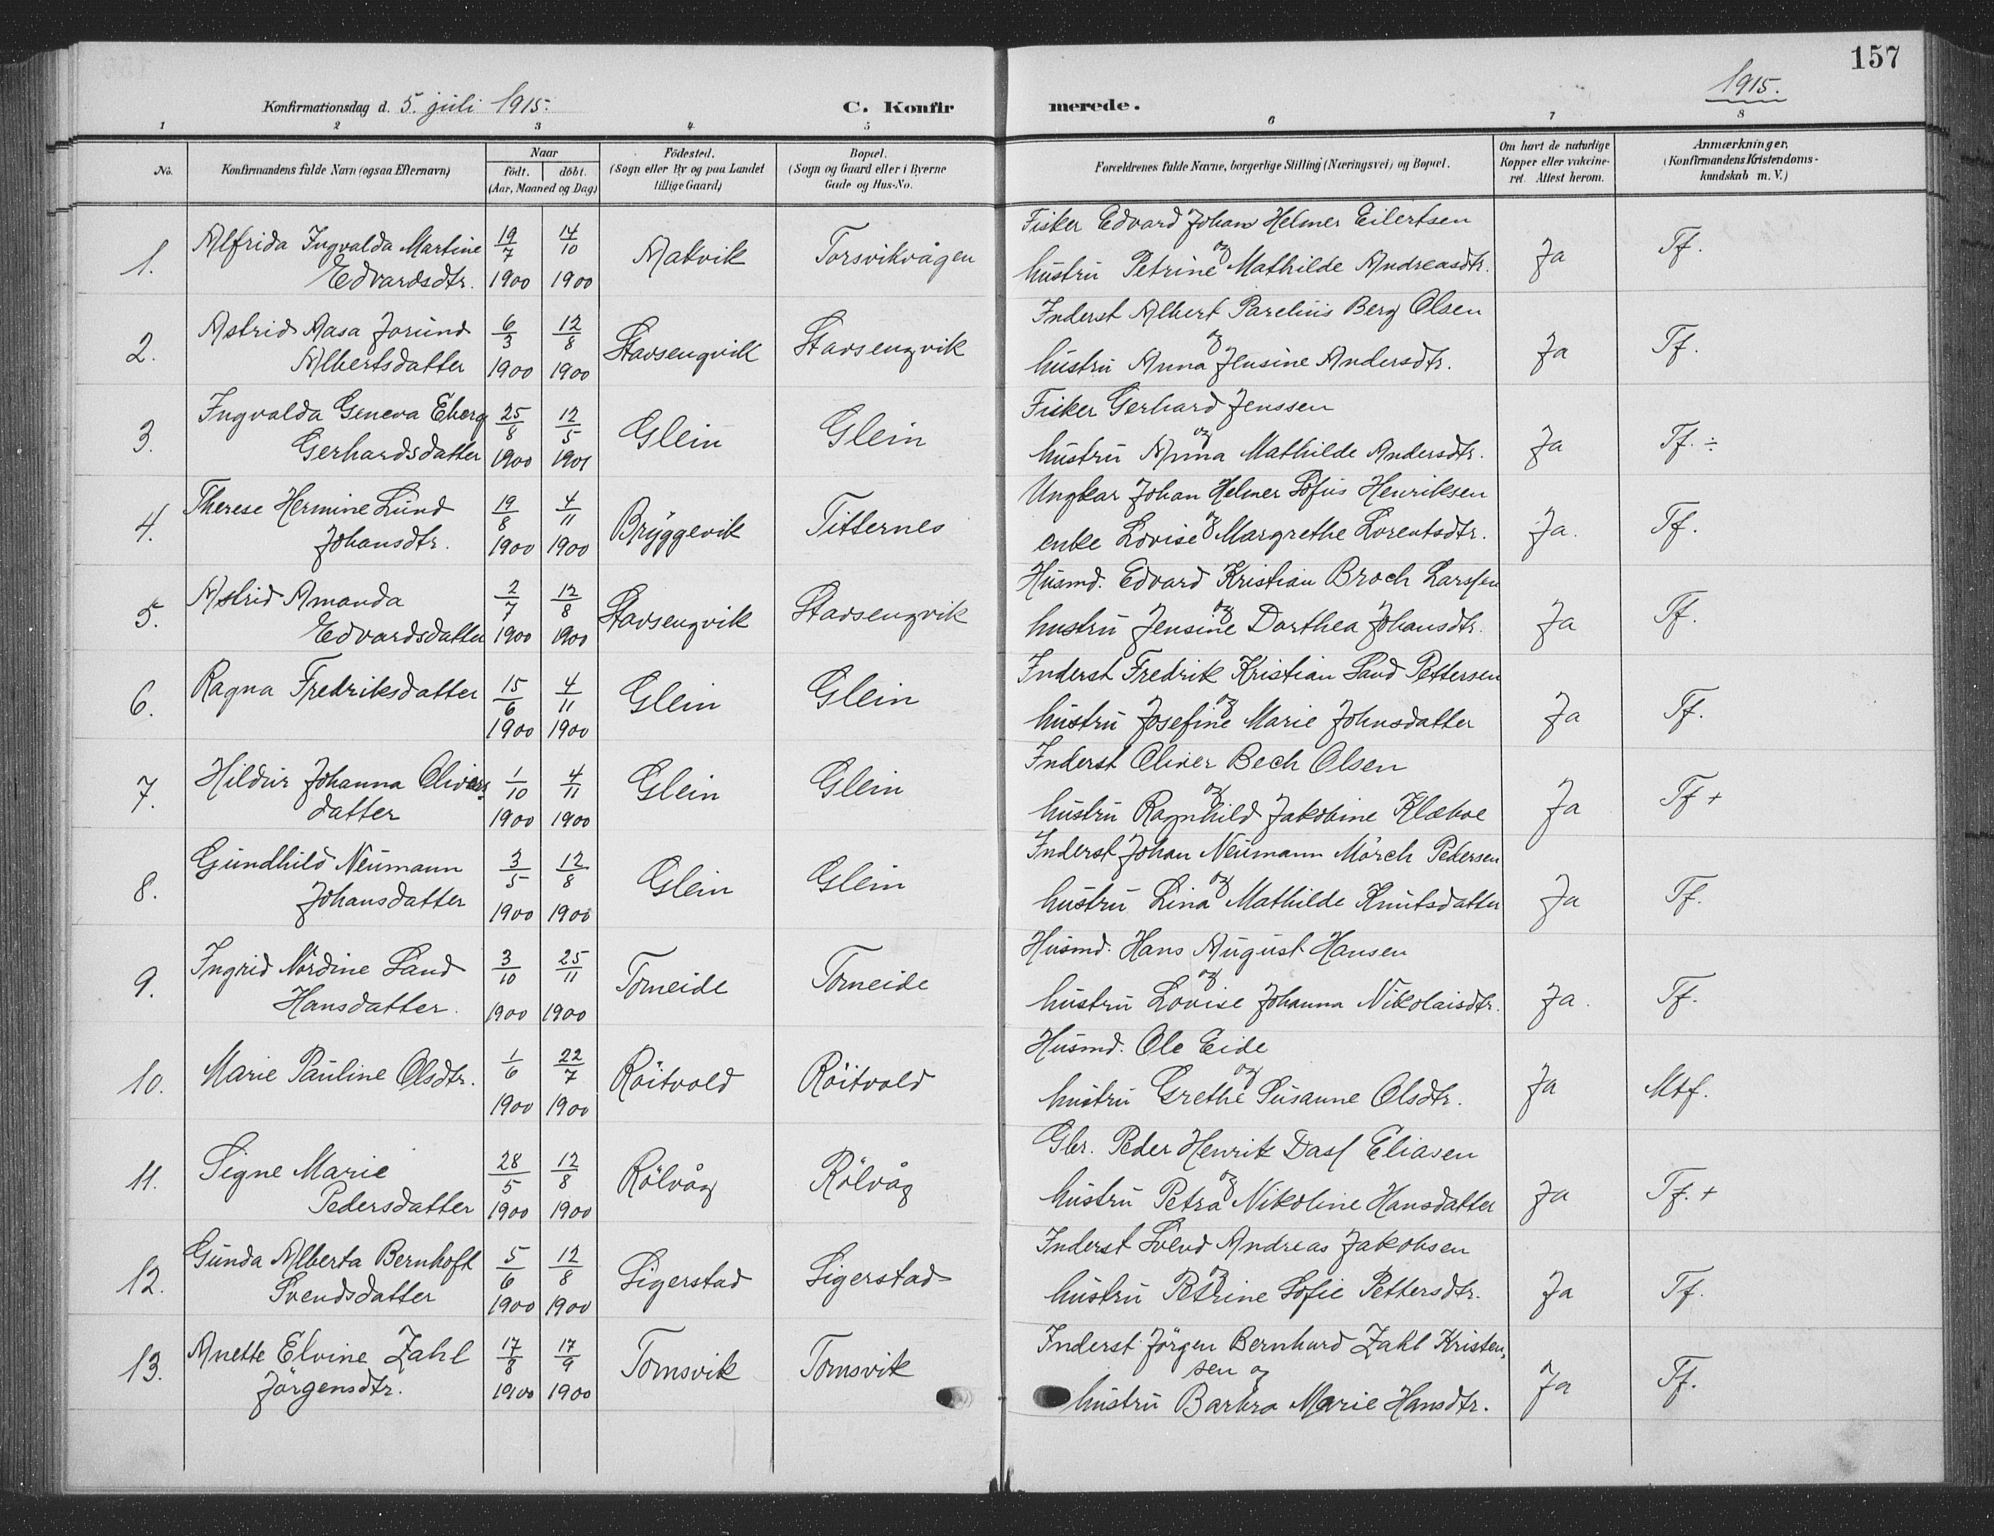 157
1915.
Konfirmationsdag d. 5. juli 1915. C. Konfirmerede.
1 2 3 4 5 6 7 8
No. Konfirmandens fulde Navn (ogsaa Efternavn) Naar født. døbt. (Aar, Maaned og Dag) Fødested. (Sogn eller By og paa Landet tillige Gaard) Bopæl. (Sogn og Gaard eller i Byerne Gade og Hus-No. Forældrenes fulde Navne, borgerlige Stilling (Næringsvei) og Bopæl. Om havt de naturlige Kopper eller vakcineret. Attest herom. Anmærkninger, (Konfirmandens Kristendomskundskab m. V.)
1. Alfrida Ingvalda Martine Edvardsdtr. 19/7 1900 14/10 1900 Aakvik Torsvikvågen Fisker Edvard Johan Helmer Eilertsen og
hustru Petrine Mathilde Andreasdtr. Ja Tf.
2. Astrid Aasa Jorund Albertsdatter 6/3 1900 12/8 1900 Stavsengvik Stavsengvik Inderst Albert Parelius Berg Olsen og
hustru Anna Jensine Andersdtr. Ja Tf.
3. Ingvalda Geneva Eberg Gerhardsdatter 25/8 1900 12/5 1901 Glein Glein Fisker Gerhard Jenssen og
hustru Anna Mathilde Andersdtr. Ja Tf. ÷
4. Therese Hermine Lund Johansdtr. 19/8 1900 4/11 1900 Bryggevik Titternes Ungkar Johan Helmer Sofus Henriksen og
enke Lovise Margrethe Lorentsdtr. Ja. Tf.
5. Astrid Amanda Edvardsdatter 2/7 1900 12/8 1900 Stavsengvik Stavsengvik Husmd. Edvard Kristian Broch Larssen og
hustru Jensine Dorthea Johansdtr. Ja Tf.
6. Ragna Fredriksdatter 15/6 1900 4/11 1900 Glein Glein Inderst Fredrik Kristian Sand Pettersen og
hustru Josefine Marie Johnsdatter Ja Tf.
7. Hildur Johanna Olivers datter 1/10 1900 4/11 1900 Glein Glein Inderst Oliver Bech Olsen og
hustru Ragnhild Jakobine Klæboe Ja Tf +
8. Gundhild Neumann Johansdatter 3/5 1900 12/8 1900 Glein Glein Inderst Johan Neumann Mörch Pedersen og
hustru Lina Mathilde Knutsdatter Ja Tf.
9. Ingrid Nordine Sand Hansdatter. 3/10 1900 25/11 1900 Torneide Torneide Husmd. Hans August Hansen og
hustru Lovise Johanna Nikolaisdtr. Ja. Tf.
10. Marie Pauline Olsdtr. 1/6 1900 22/7 1900 Röitvold Röitvold Husmd. Ole Eide og
hustru Grethe Susanne Olsdtr. Ja Mtf.
11. Signe Marie Pedersdatter 28/5 1900 12/8 1900 Rölvåg Rölvåg Gbr. Peder Henrik Dass Eliasen og
hustru Petra Nikoline Hansdatter Ja Tf. +
12. Gunda Alberta Bernhoft Svendsdatter 5/6 1900 12/8 1900 Sigerstad Sigerstad Inderst Svend Andreas Jakobsen og
hustru Petrine Sofie Pettersdtr. Ja Tf.
13. Anette Elvine Zahl Jörgensdtr. 17/8 1900 17/9 1900 Tomsvik Tomsvik Inderst Jörgen Bernhard Zahl Kristensen og
hustru Barbra Marie Hansdtr. Ja Tf.